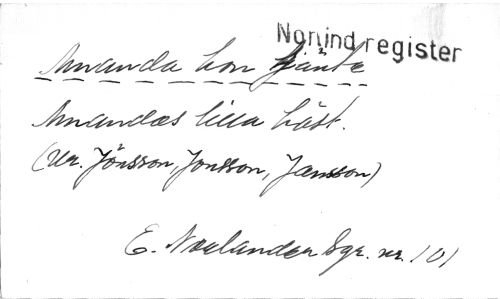 Nomind register
Amanda hon fjänta
Amandas lilla häst.
(Ur. Jönsson, Jonsson, Jansson)
E. Norlander Sgr. nr. 101